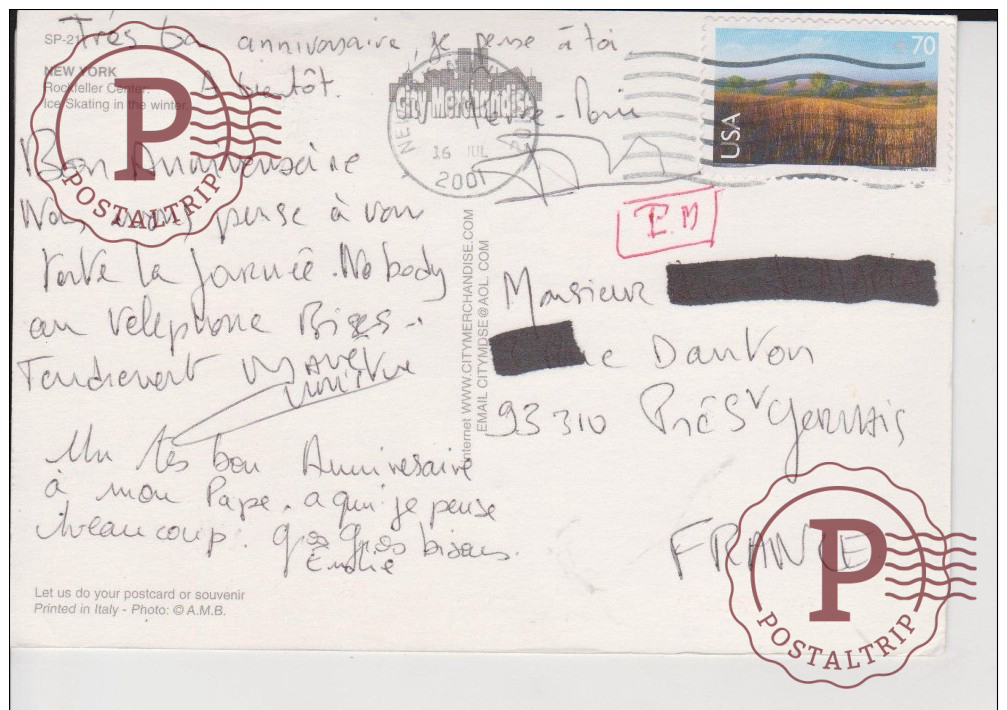 SP-21
Très bon anniversaire, je pense à toi
A bientôt.
Pierre-
NEW YORK
Rockfeller Center.
Ice Skating in the winter.
Bon Anniversaire
Nous pense à vous
toute la journée. Nobody
au telephone Bises
Tendrement
Un très bon Anniversaire
à mon Papa. a qui je pense
beaucoup. gros gros bisous.
Let us do your postcard or souvenir
Printed in Italy - Photo: © A.M.B.
Internet WWW.CITYMERCHANDISE.COM
EMAIL CITYMDSE@AOL.COM
City Merchandise
16 JUL
2001
USA
70
P.M
Monsieur
Danton
93310 Prés St Gervais
FRANCE
P
POSTALTRIP
P
POSTALTRIP